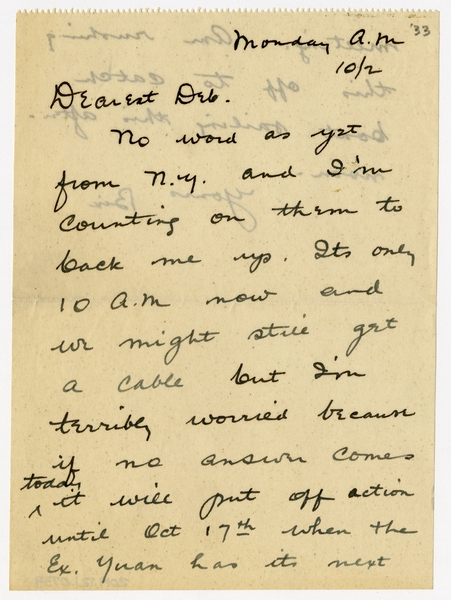 '33
Monday A.M
10/2
Dearest Deb.
No word as yet
from N.Y. and I'm
counting on them to
back me up. Its only
10 A.M now and
we might still get
a cable but I'm
terribly worried because
if no answer comes
today
^ it will put off action
until Oct 17th when the
Ex. Yuan has its next